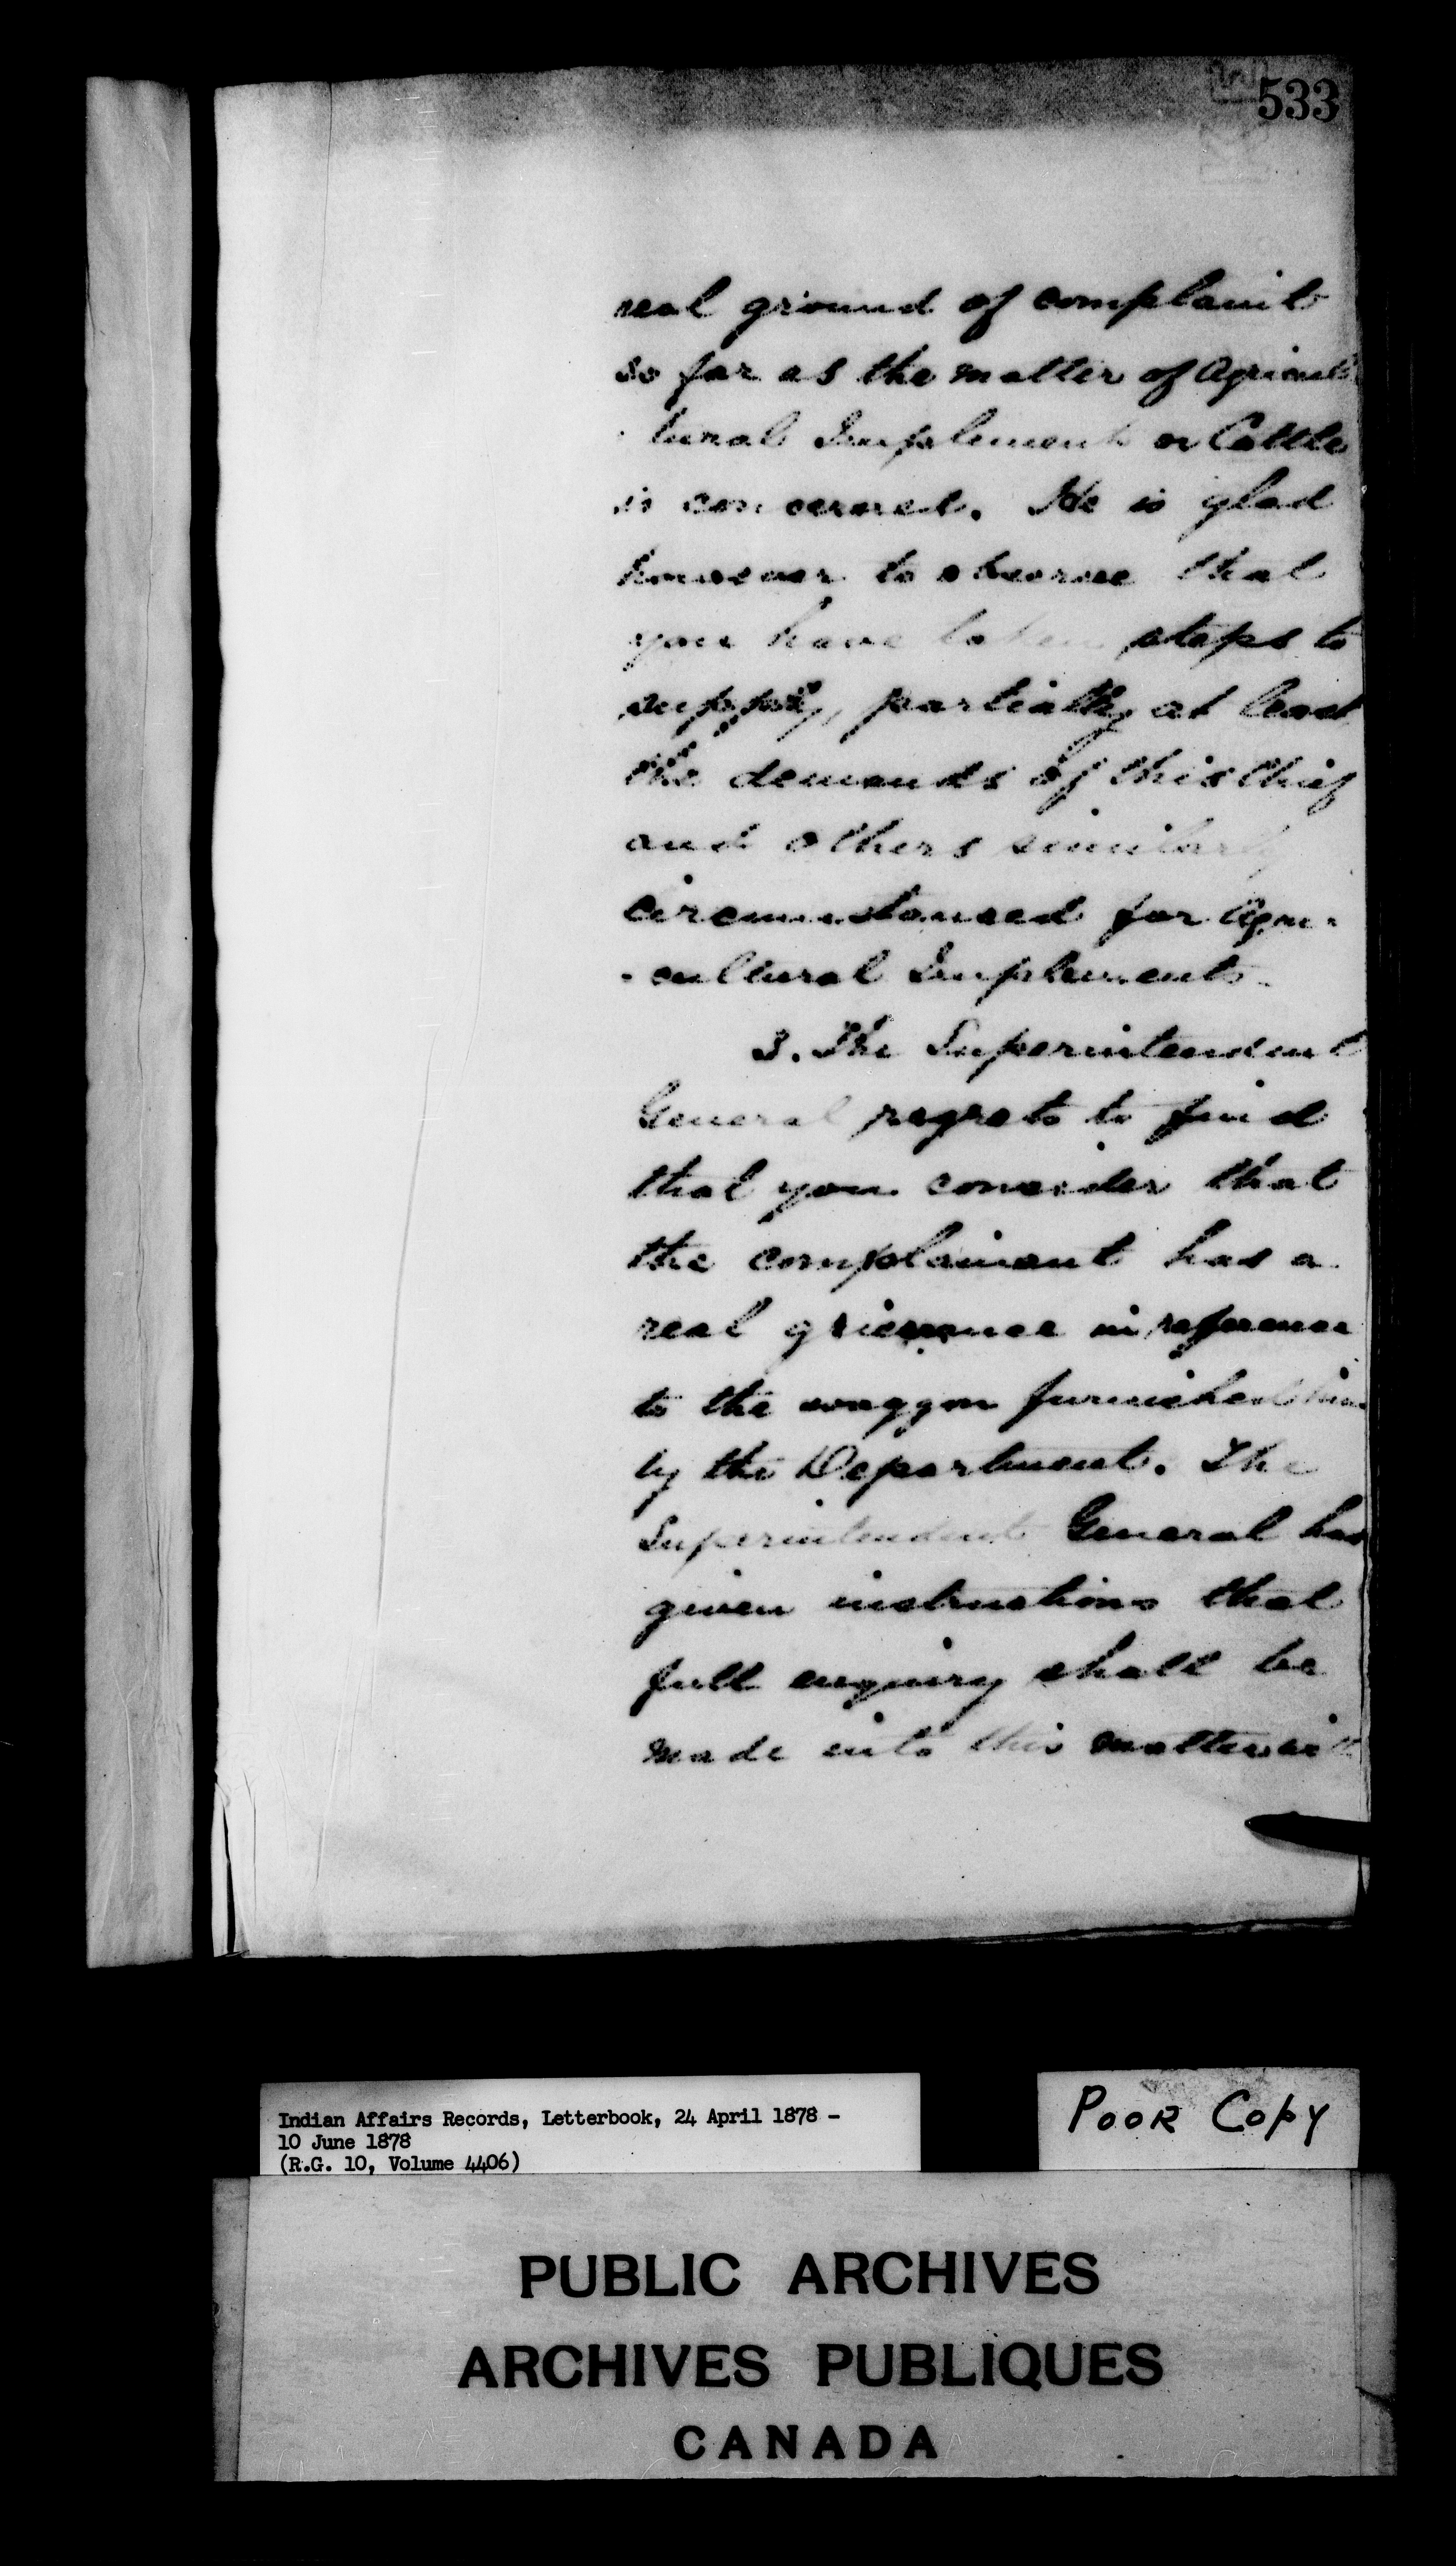 533
real ground of complaint
so far as the matter of Agricul
- tural Implements or Cattle
is concerned. He is glad
however to observe that
you have taken steps to
supply, partially at least
the demands of this Chief
and others similarly
circumstanced for Agri-
- cultural Implements.
3. The Superintendent
General regrets to find
that you consider that
the complainant has a
real grievance in reference
to the waggon furnished him
by the Department. The
Superintendent General has
given instructions that
full enquiry shall be
made into this matter with
Indian Affairs Records, Letterbook, 24 April 1878 -
10 June 1878
(R.G. 10, Volume 4406)
POOR COPY
PUBLIC ARCHIVES
ARCHIVES PUBLIQUES
CANADA